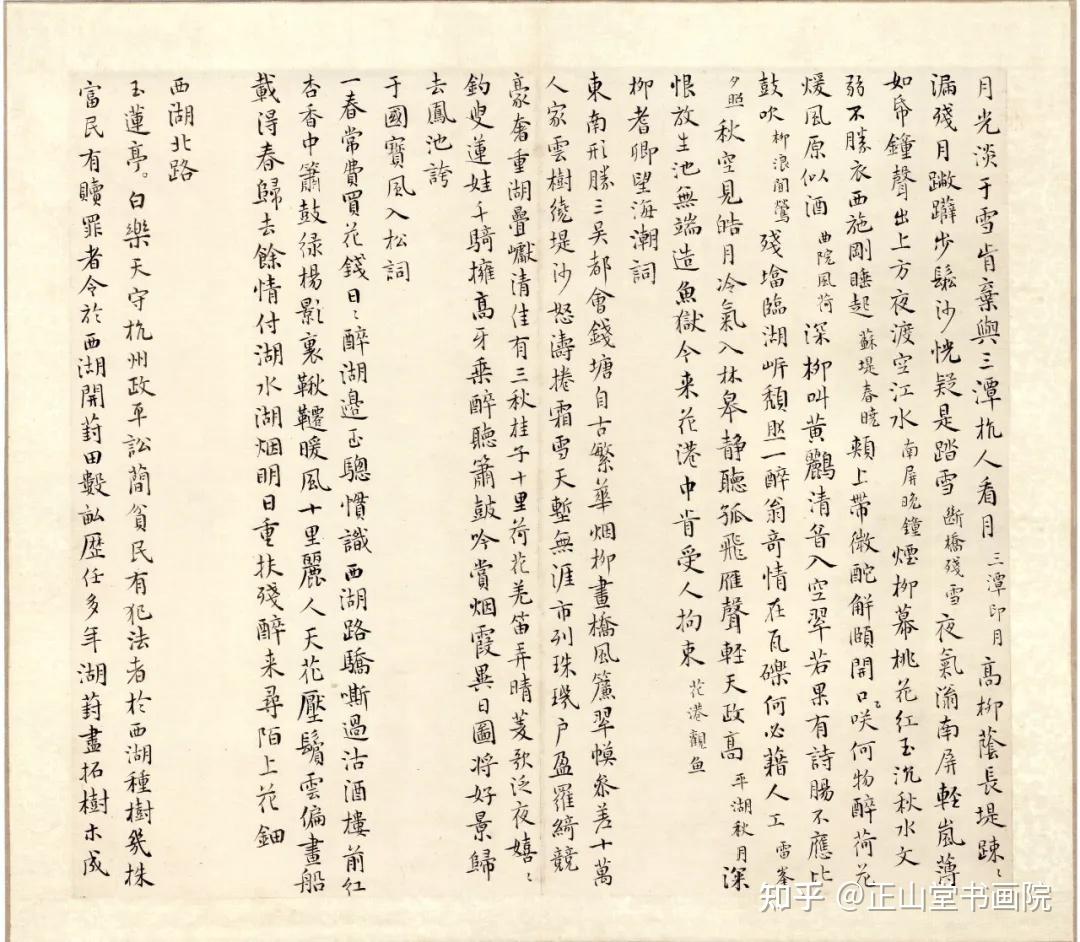 月光淡于雪肯棄與三潭杭人看月 三潭印月 高柳蔭長堤踈〻
漏殘月蹩躠步鬆沙恍疑是踏雪 斷橋殘雪 夜氣滃南屏輕嵐薄
如帋鐘聲出上方夜渡空江水 南屏晚鐘 煙柳幕桃花紅玉沉秋水文
弱不勝衣西施剛睡起 蘇堤春曉 頰上帶微酡解頤開口〻咲何物醉荷花
煖風原似酒 曲院風荷 深柳叫黃鸝清音入空翠若果有詩腸不應比
鼓吹 柳浪聞鶯 殘墖臨湖岓頹然一醉翁奇情在瓦礫何必藉人工 雷峯
夕照 秋空見皓月冷氣入林皋静聽孤飛雁聲輕天政高 平湖秋月 深
恨放生池無端造魚獄今来花港中肯受人拘束 花港觀魚
柳耆卿望海潮詞
東南形勝三吳都會錢塘自古繁華烟柳畫橋風簾翠幙參差十萬
人家雲樹繞堤沙怒濤捲霜雪天塹無涯市列珠璣户盈羅綺競
豪奢重湖疊巘清佳有三秋桂子十里荷花羌笛弄晴菱歌泛夜嬉〻
釣叟蓮娃千騎擁高牙乗醉聽簫鼓吟賞烟霞異日圖将好景歸
去鳳池誇
于國寳風入松詞
一春常費買花錢日〻醉湖邉玉驄慣識西湖路驕嘶過沽酒樓前紅
杏香中簫鼓緑楊影裏鞦韆暖風十里麗人天花壓鬢雲偏畫船
載得春歸去餘情付湖水湖烟明日重扶殘醉来尋陌上花鈿
西湖北路
玉蓮亭。白樂天守杭州政平訟簡貧民有犯法者於西湖種樹幾株
富民有贖罪者令於西湖開葑田數畝歷任多年湖葑盡拓樹木成
知乎 @正山堂书画院